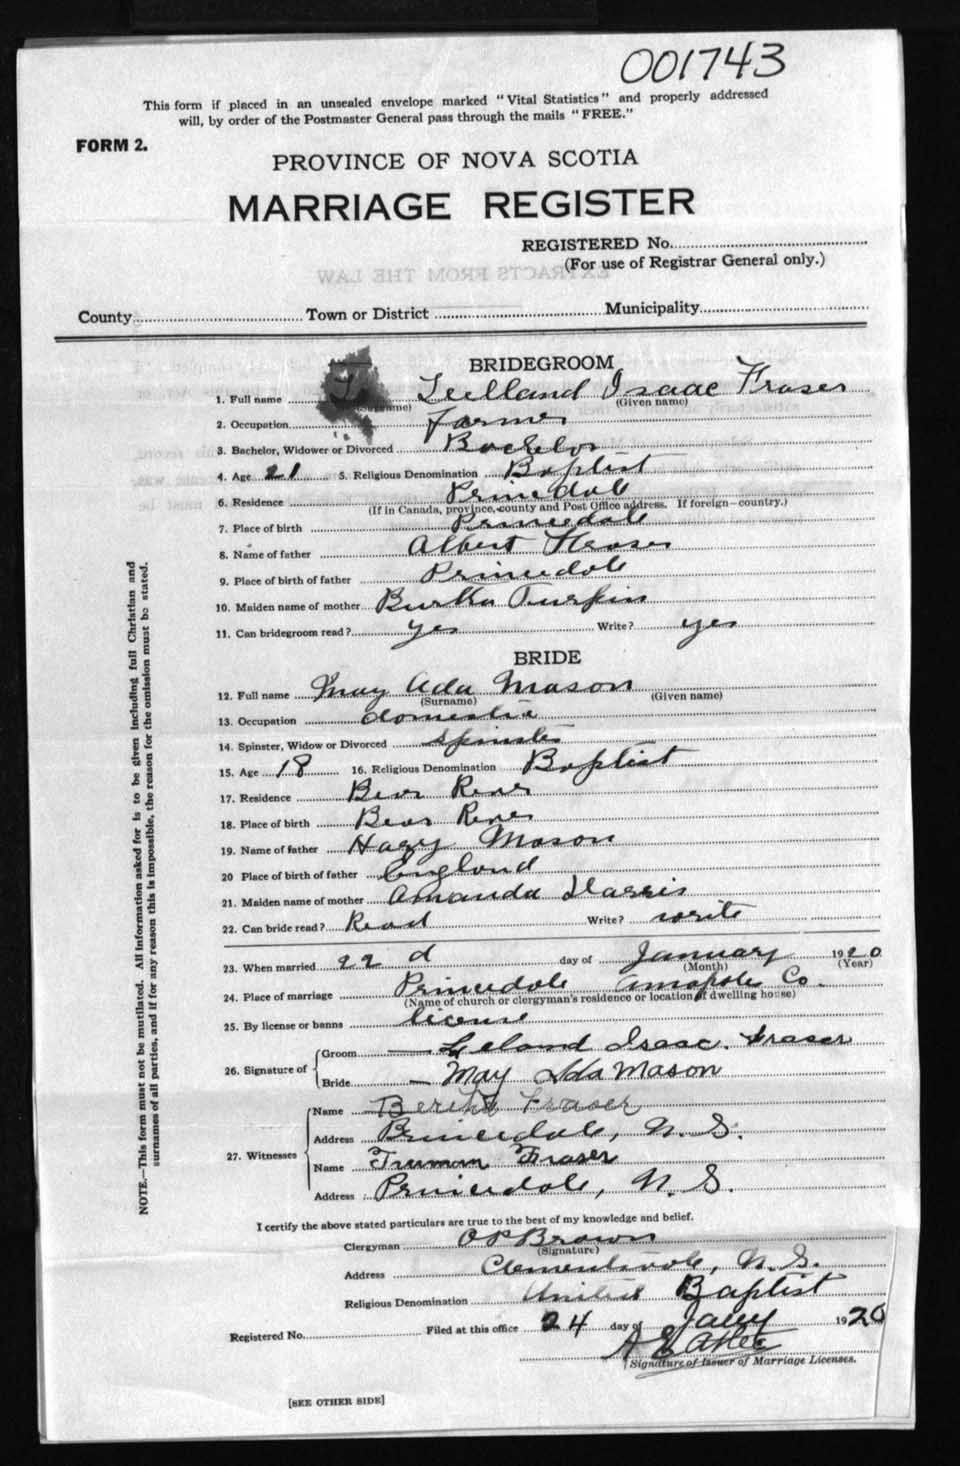 001743
This form if placed in an unsealed envelope marked "Vital Statistics" and properly addressed
will, by order of the Postmaster General pass through the mails "FREE."
FORM 2.
PROVINCE OF NOVA SCOTIA
MARRIAGE REGISTER
REGISTERED No.
(For use of Registrar General only.)
EXTRACTS FROM THE LAW
County Town or District Municipality
BRIDEGROOM
1. Full name Leelland Isaac Fraser
(Surname) (Given name)
2. Occupation farmer
3. Bachelor, Widower or Divorced Bachelor
4. Age 21 5. Religious Denomination Baptist
6. Residence Princedale
(If in Canada, province, county and Post Office address. If foreign—country.)
7. Place of birth Princedale
8. Name of father Albert Fraser
9. Place of birth of father Princedale
10. Maiden name of mother Turpin
11. Can bridegroom read? yes Write? yes
BRIDE
12. Full name May Ada Mason
(Surname) (Given name)
13. Occupation domestic
14. Spinster, Widow or Divorced spinster
15. Age 18 16. Religious Denomination Baptist
17. Residence Bear River
18. Place of birth Bear River
19. Name of father Harry Mason
20 Place of birth of father England
21. Maiden name of mother Amanda Harris
22. Can bride read? Read Write? write
23. When married 22 d day of January 1920
(Month) (Year)
24. Place of marriage Princedale Anapolis Co.
(Name of church or clergyman's residence or location of dwelling house)
25. By license or banns license
26. Signature of
Groom — Leland Isaac. Fraser
Bride — May Ida Mason
27. Witnesses
Name Bertha Fraser
Address Princedale, N. S.
Name Truman Fraser
Address Princedale, N. S.
I certify the above stated particulars are true to the best of my knowledge and belief.
Clergyman O P Brown
(Signature)
Address Clementsvale, N. S.
Religious Denomination United Baptist
Registered No. Filed at this office 24 day of Jany 1920
Signature of Issuer of Marriage Licenses.
[SEE OTHER SIDE]
NOTE.—This form must not be mutilated. All information asked for is to be given including full Christian and
surnames of all parties, and if for any reason this is impossible, the reason for the omission must be stated.